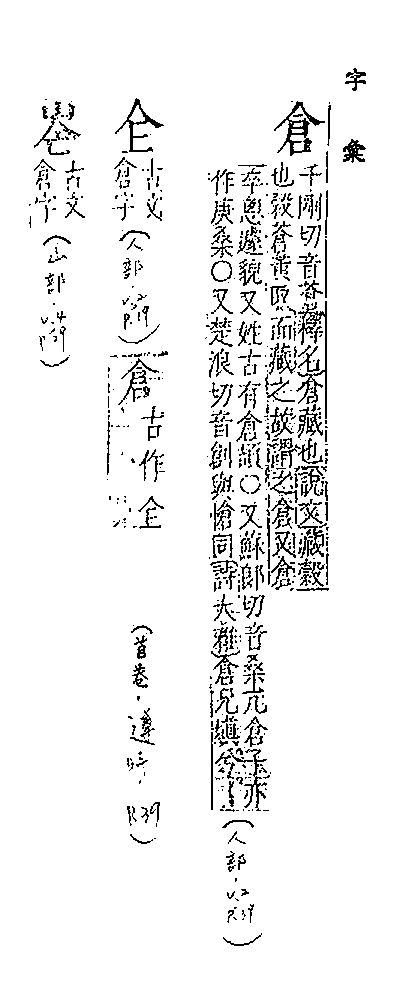 字彙
倉
千剛切音蒼釋名倉藏也說文藏穀
也穀蒼黃取而藏之故謂之倉又倉
卒怱遽貌又姓古有倉頡○又蘇郎切音桑亢倉子亦
作庚桑○又楚浪切音創與愴同詩大雅倉兄塡兮
(人部,V.2 P.39)
仺
古文
倉字
(人部,
倉
古作仺
(首卷,遵時,P.39)
古文
倉字
(山部,V.4